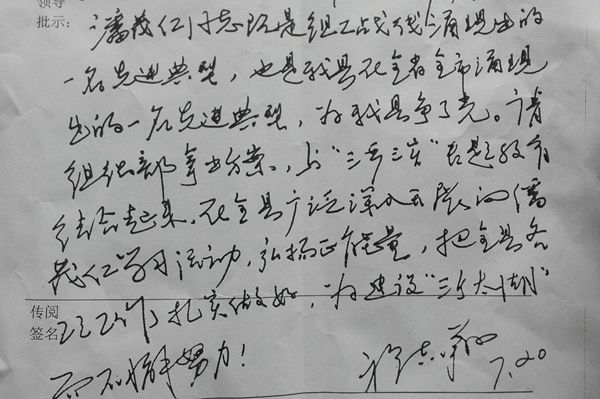 领导
批示：
潘茂仁同志既是组工战线涌现出的
一名先进典型，也是我县在全省全市涌现
出的一名先进典型，为我县争了光。请
组织部拿出方案，与"三严三实"专题教育
结合起来，在全县广泛深入开展向潘
茂仁学习活动，弘扬正能量，把全县各
项工作扎实做好，为建设"三个太湖"
而不懈努力！
7.20
传阅
签名